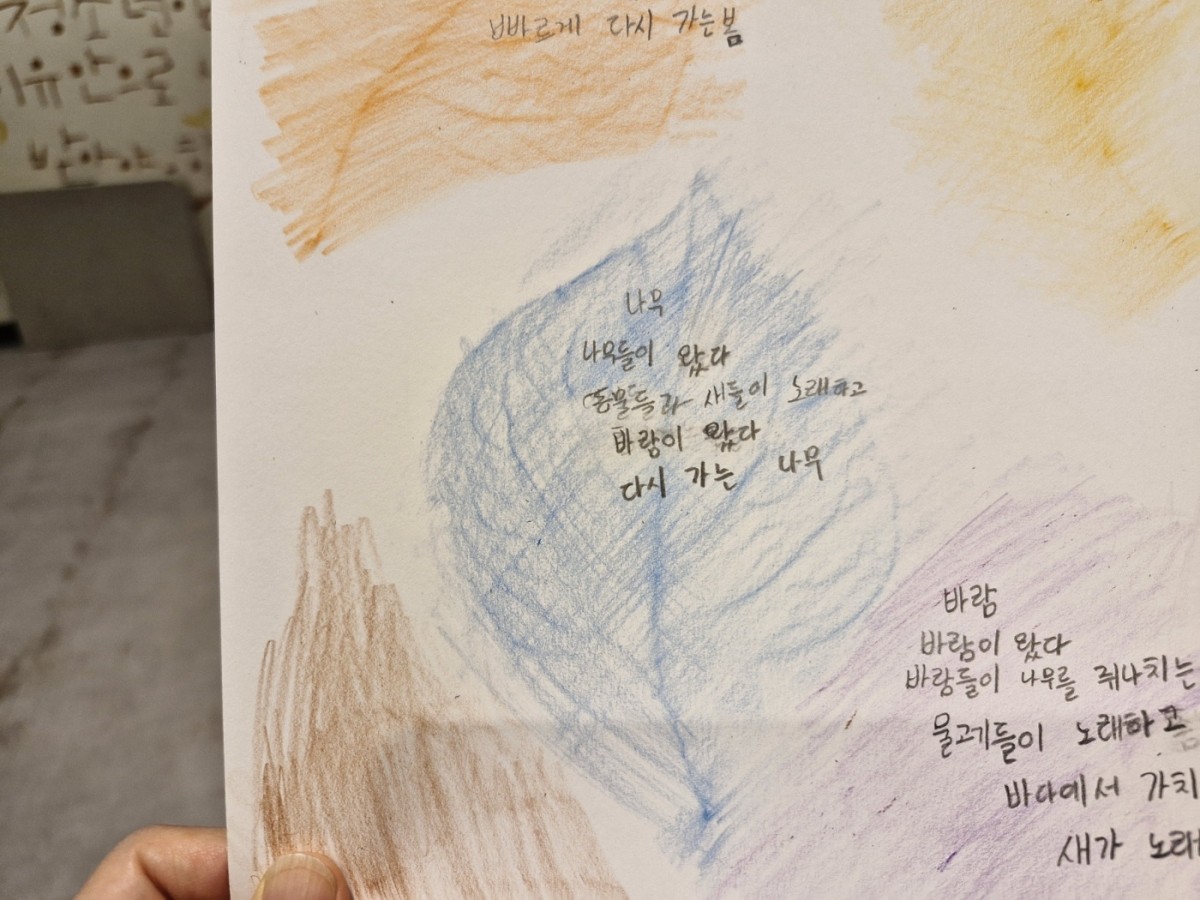 빠르게 다시 가는봄
나무
나무들이 왔다
동물들과 새들이 노래하고
바람이 왔다
다시 가는 나무
바람
바람이 왔다
바람들이 나무를 줘나치는
물고기들이 노래하고
바다에서 가치
새가 노래
청소년
유안으로
받아야